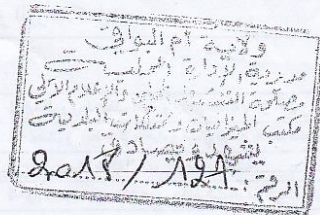 ولاية أم البواقي
مديرية الإدارة المحلية
مصلحة التنشيط المحلي والإعلام الآلي
مكتب الميزانيات وممتلكات البلديات
يشهد
الرقم : 2018 / 121